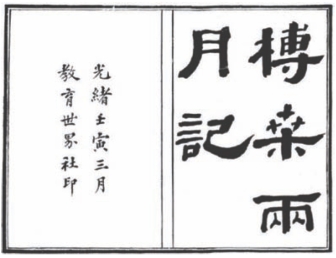 榑桒兩
月記
光緒壬寅三月
教育世界社印